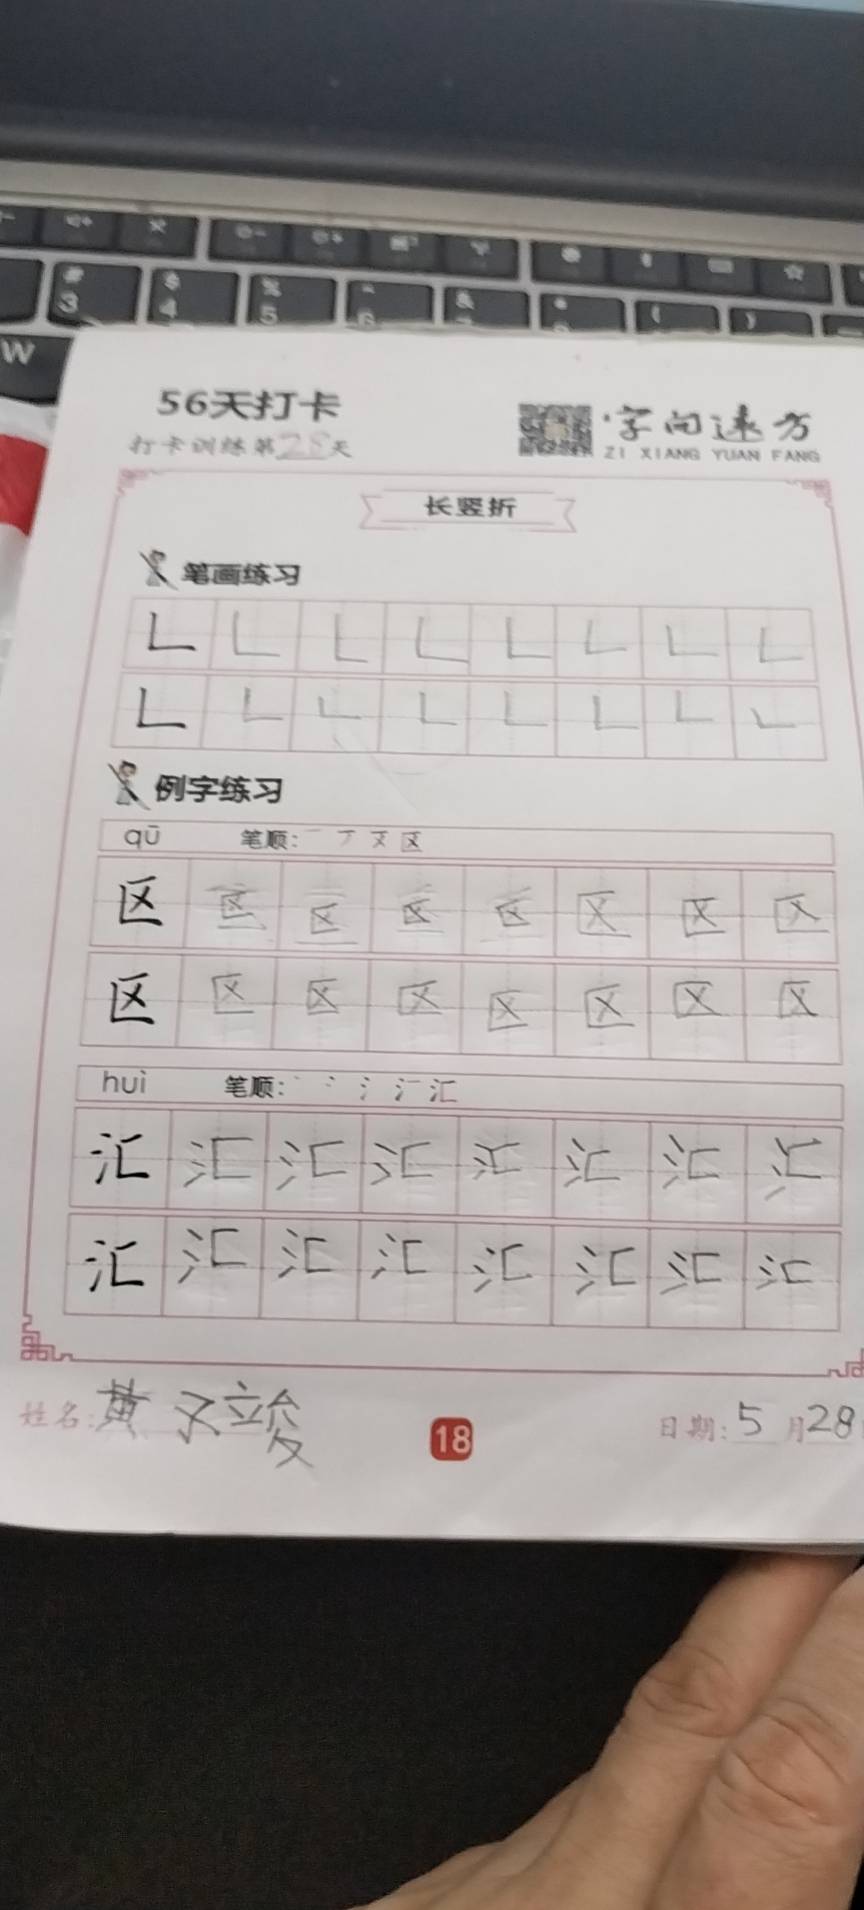 # $ % &
3 4 5 6
W
56天打卡
打卡训练第28天
字向远方
ZI XIANG YUAN FANG
长竖折
笔画练习
𠃊 𠃊 𠃊 𠃊 𠃊 𠃊 𠃊 𠃊
𠃊 𠃊 𠃊 𠃊 𠃊 𠃊 𠃊 𠃊
例字练习
qū 笔顺:
区 区 区 区 区 区 区 区
区 区 区 区 区 区 区 区
huì 笔顺:
汇 汇 汇 汇 汇 汇 汇 汇
汇 汇 汇 汇 汇 汇 汇 汇
姓名:黄又竣
18
日期:5月28